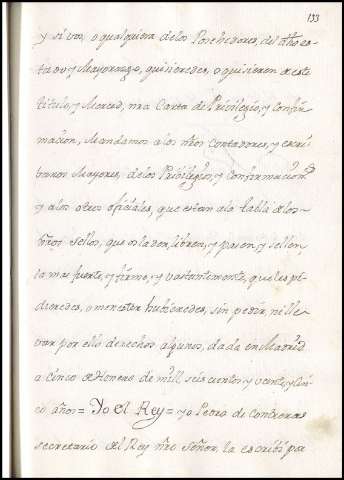 133
y si vos, o qualquiera de los Poshedores, del dho es-
tado y Mayorazgo, quisieredes, o quisieren de este
titulo, y Merced, nra Carta de Privilegio, y Confir-
macion, Mandamos a los nros Contadores, y escri-
banos Mayores, de los Privilegios, y Confirmaciones
y a los otros oficiales, que estan a la tabla de los
nros sellos, que os la den, libren, y pasen, y sellen,
la mas fuerte, y firme, y vastantemente, que les pi-
dieredes, o menester hubieredes, sin pedir, ni lle-
var por ello derechos algunos, dada en Madrid
a Cinco de Henero de mill, seis cientos y veinte, y Cin-
co años = Yo el Rey = yo Pedro de Contreras
secretario del Rey nro Señor, la escribi por